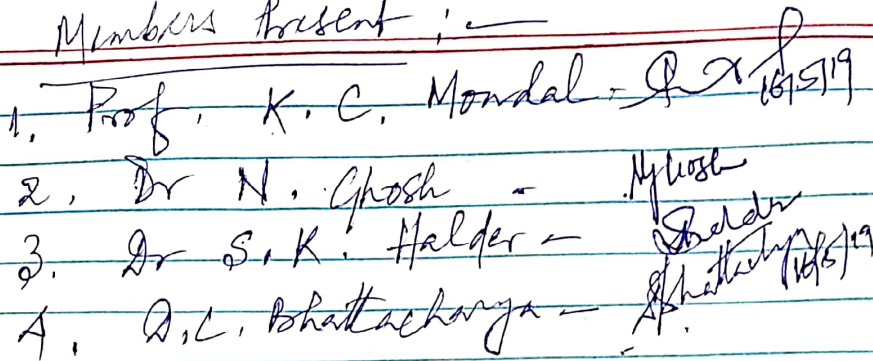 Members Present :-
1. Prof. K. C. Mondal - 16/5/19
2. Dr N. Ghosh - NGhosh
3. Dr S. K. Halder - SHalder
4. D.C. Bhattacharya - Bhattacharya 16/5/19